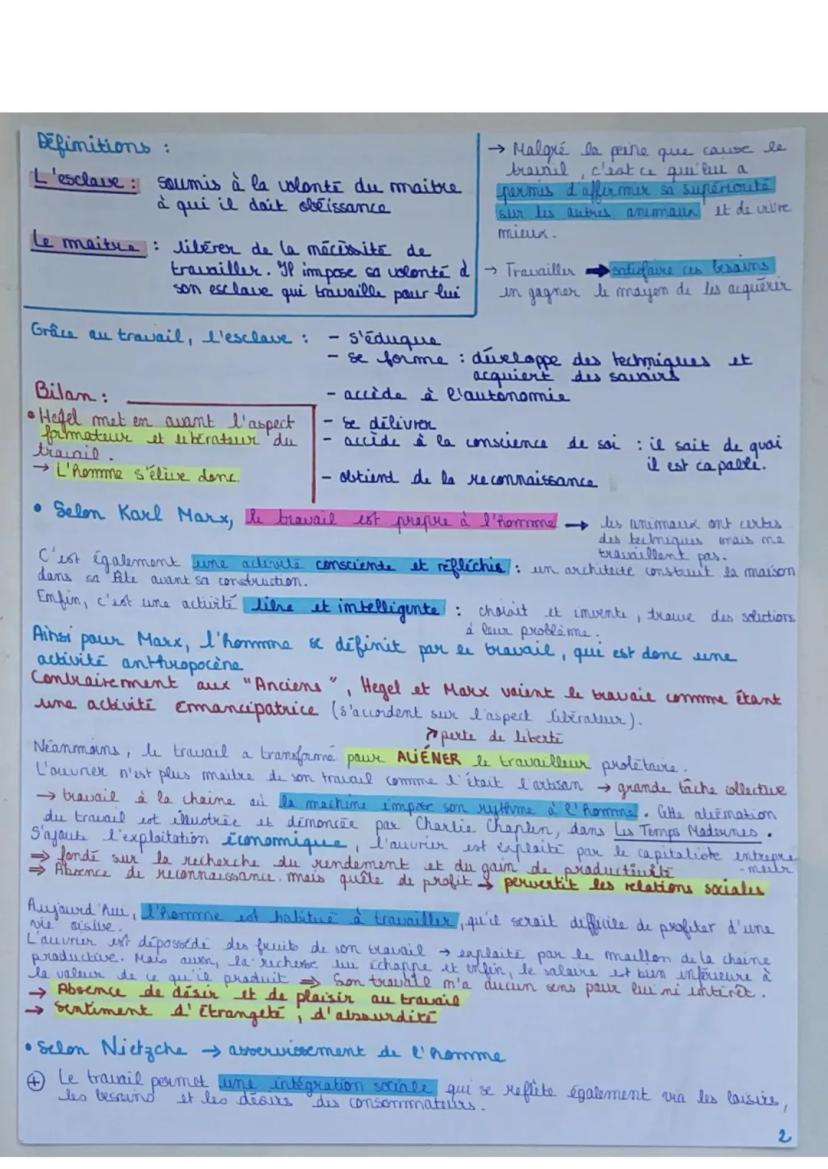 Définitions :
L'esclave : soumis à la volonté du maitre
à qui il doit obéissance
Le maitre : libérer de la nécéssité de
travailler. Il impose sa volonté à
son esclave qui travaille pour lui
→ Malgré la peine que cause le
travail, c'est ce qui lui a
permis d'affirmer sa supériorité
sur les autres animaux et de vivre
mieux.
→ Travailler → satisfaire ces besoins
en gagner le moyen de les acquérir
Grâce au travail, l'esclave : - s'éduque
- se forme : développe des techniques et
acquiert des savoirs
- accède à l'autonomie
- se délivrer
- accède à la conscience de soi : il sait de quoi
il est capable.
- obtient de la reconnaissance
Bilan :
• Hegel met en avant l'aspect
formateur et libérateur du
travail.
→ L'homme s'élive donc
• Selon Karl Marx, le travail est propre à l'homme → les animaux ont certes
des techniques mais ne
travaillent pas.
C'est également une activité consciente et réfléchie : un architecte construit la maison
dans sa tête avant sa construction.
Enfin, c'est une activité libre et intelligente : choisit et invente, trouve des solutions
à leur problème.
Ainsi pour Marx, l'homme se définit par le travail, qui est donc une
activité anthropocène
Contrairement aux "Anciens", Hegel et Marx voient le travail comme étant
une activité émancipatrice (s'accordent sur l'aspect libérateur).
↗ perte de liberté
Néanmoins, le travail a transformé pour ALIÉNER le travailleur prolétaire.
L'ouvrier n'est plus maitre de son travail comme l'était l'artisan → grande tâche collective
→ travail à la chaine où la machine impose son rythme à l'homme. Cette aliénation
du travail est illustrée et dénoncée par Charlie Chaplin, dans Les Temps Modernes.
S'ajoute l'exploitation économique, l'ouvrier est exploité par le capitaliste entrepre
-neur
⇒ fondé sur la recherche du rendement et du gain de productivité
⇒ Absence de reconnaissance mais quête de profit → pervertit les relations sociales
Aujourd'hui, l'homme est habitué à travailler, qu'il serait difficile de profiter d'une
vie oisive.
L'ouvrier est dépossédé des fruits de son travail → exploité par le maillon de la chaine
productive. Mais aussi, la richesse lui échappe et enfin, le salaire est bien inférieure à
la valeur de ce qu'il produit ⇒ Son travail n'a aucun sens pour lui ni intérêt.
→ Absence de désir et de plaisir au travail
→ Sentiment d'Étrangeté, d'absurdité
• Selon Nietzche → asservissement de l'homme
⊕ Le travail permet une intégration sociale qui se reflète également via les loisirs,
les besoins et les désirs des consommateurs.
2